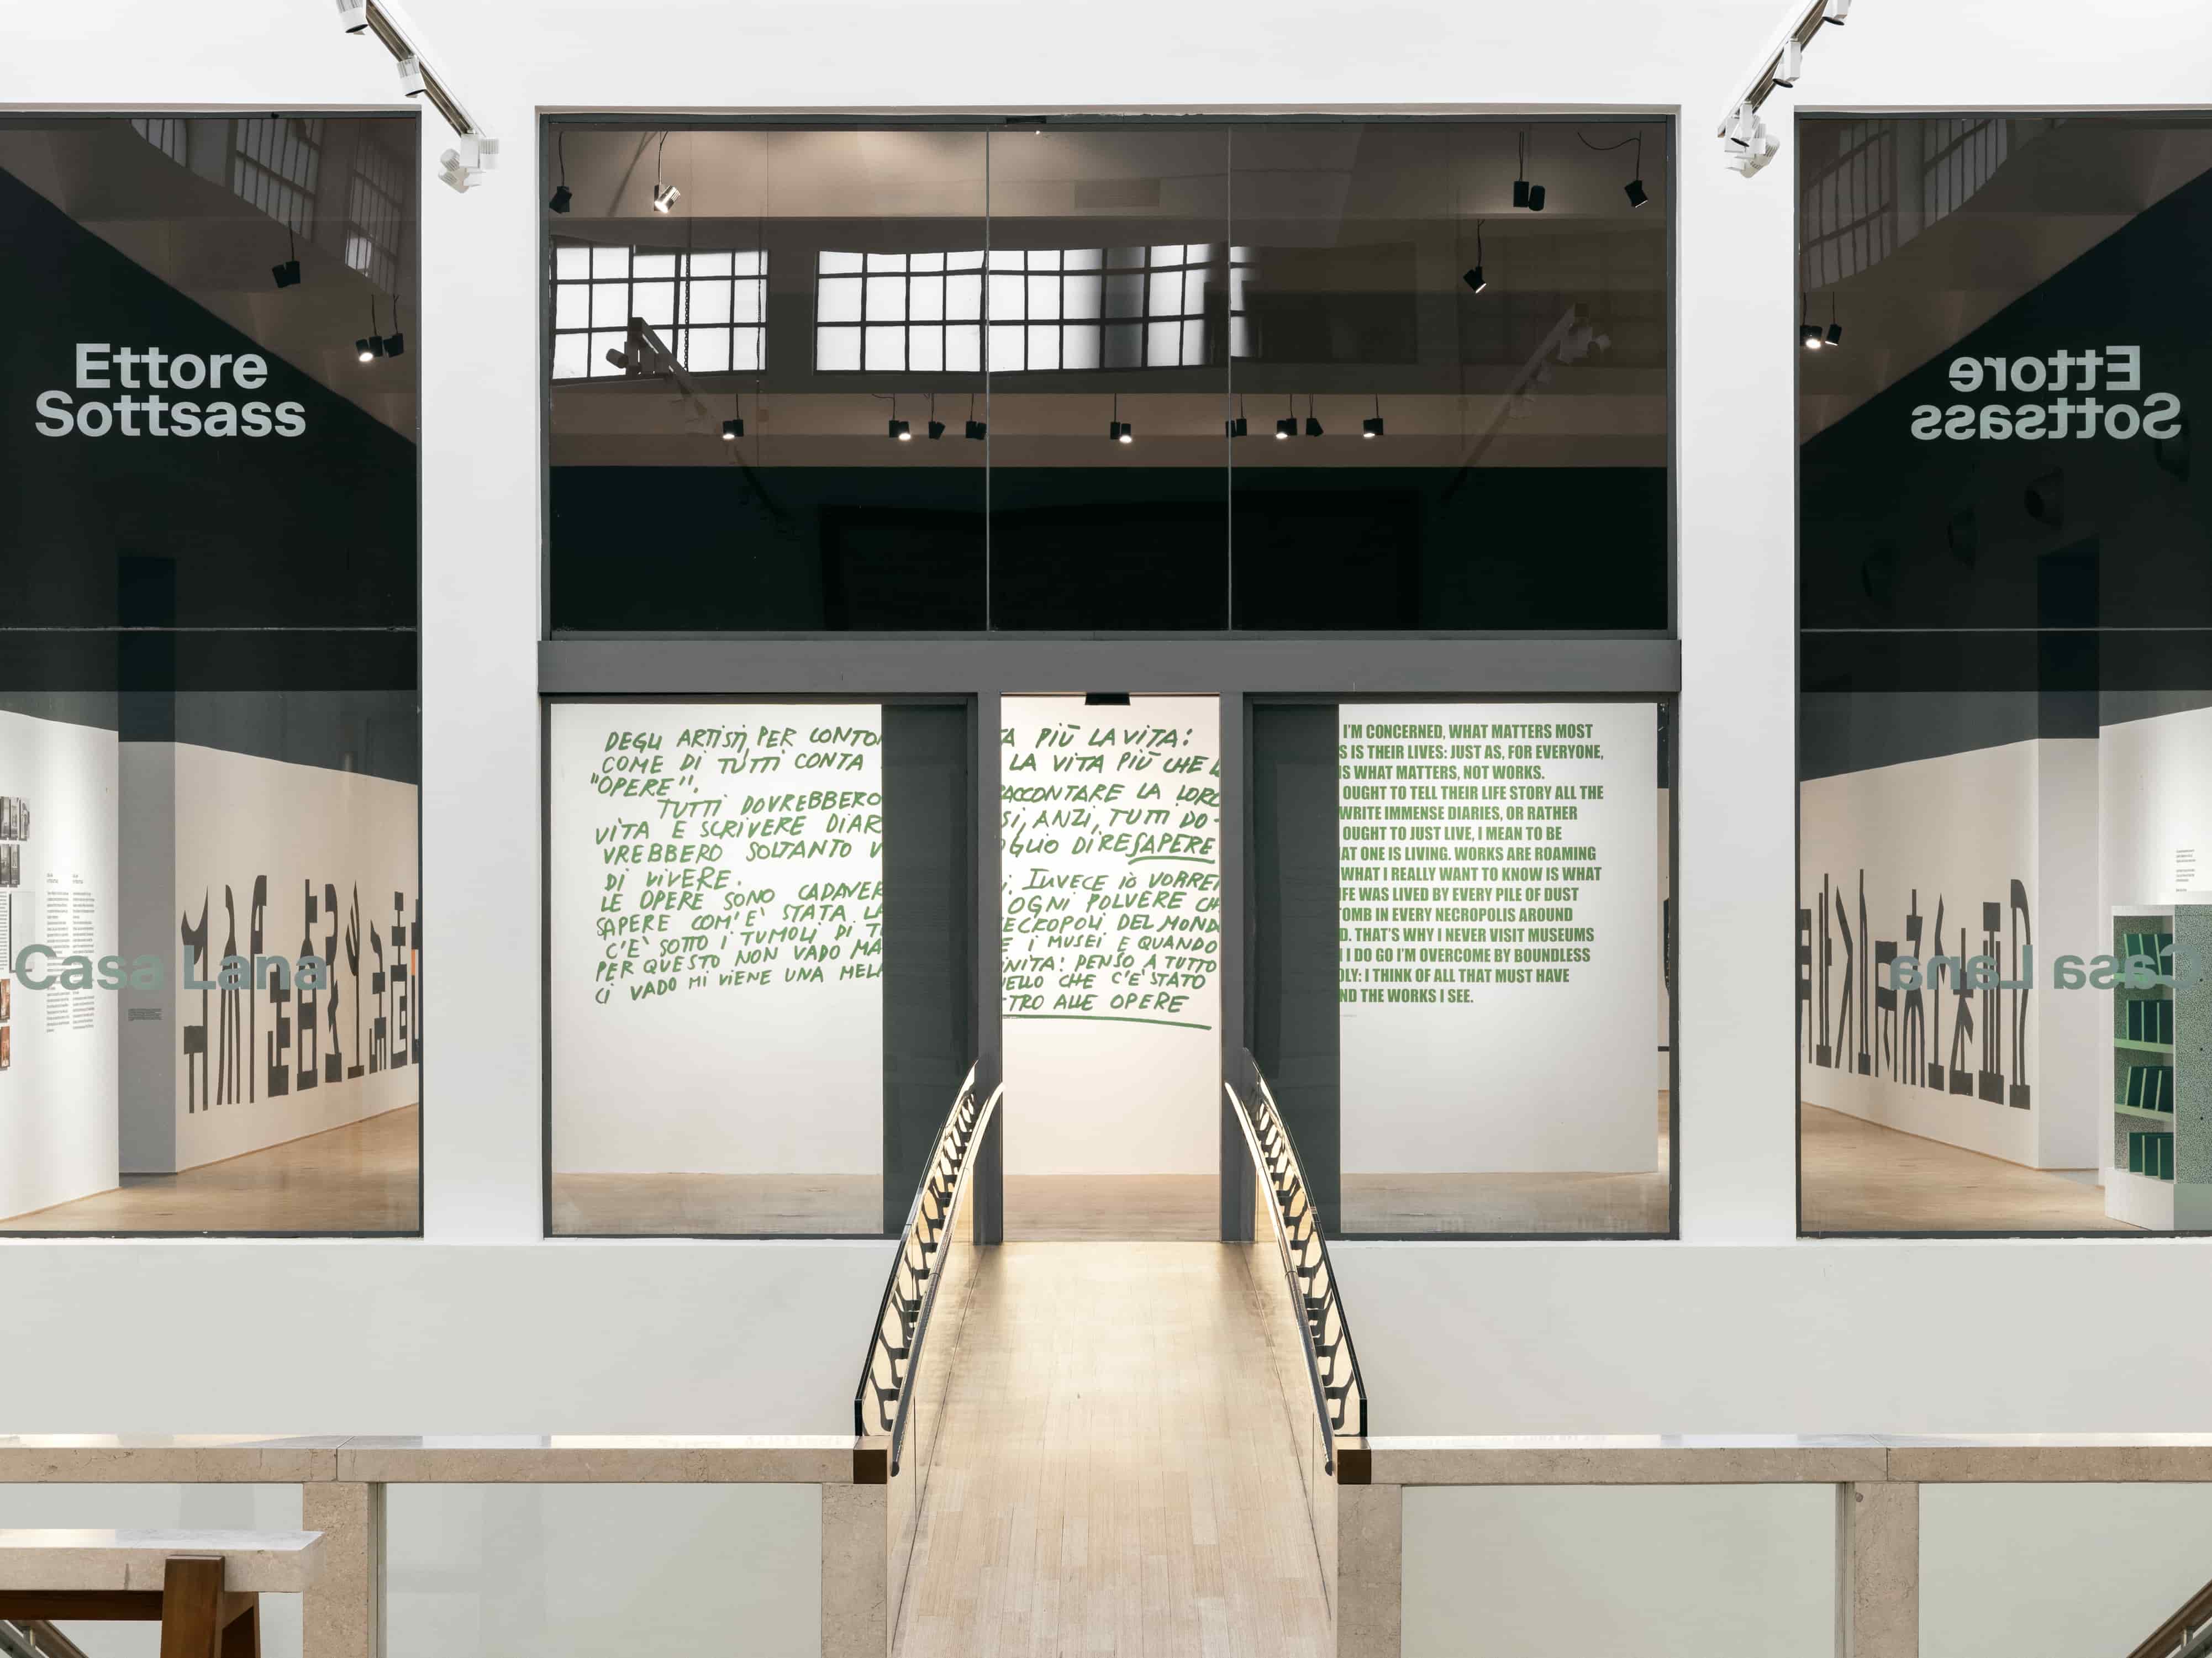 Ettore
Sottsass
Casa Lana
DEGLI ARTISTI, PER CONTO
COME DI TUTTI CONTA
"OPERE".
TUTTI DOVREBBERO
VITA E SCRIVERE DIAR
VREBBERO SOLTANTO V
DI VIVERE.
LE OPERE SONO CADAVER
SAPERE COM'E' STATA LA
C'E' SOTTO I TUMOLI DI T
PER QUESTO NON VADO MA
CI VADO MI VIENE UNA MELA
A PIÙ LA VITA:
LA VITA PIÙ CHE L
RACCONTARE LA LORO
SI, ANZI, TUTTI DO-
OGLIO DIRE SAPERE
I. INVECE IO VORREI
OGNI POLVERE CH
ECROPOLI DEL MOND
E I MUSEI E QUANDO
NITA: PENSO A TUTTO
ELLO CHE C'E' STATO
TRO ALLE OPERE
I'M CONCERNED, WHAT MATTERS MOST
S IS THEIR LIVES: JUST AS, FOR EVERYONE,
IS WHAT MATTERS, NOT WORKS.
OUGHT TO TELL THEIR LIFE STORY ALL THE
WRITE IMMENSE DIARIES, OR RATHER
OUGHT TO JUST LIVE, I MEAN TO BE
AT ONE IS LIVING. WORKS ARE ROAMING
WHAT I REALLY WANT TO KNOW IS WHAT
FE WAS LIVED BY EVERY PILE OF DUST
OMB IN EVERY NECROPOLIS AROUND
D. THAT'S WHY I NEVER VISIT MUSEUMS
I DO GO I'M OVERCOME BY BOUNDLESS
OLY: I THINK OF ALL THAT MUST HAVE
ND THE WORKS I SEE.
Ettore
Sottsass
Casa Lana